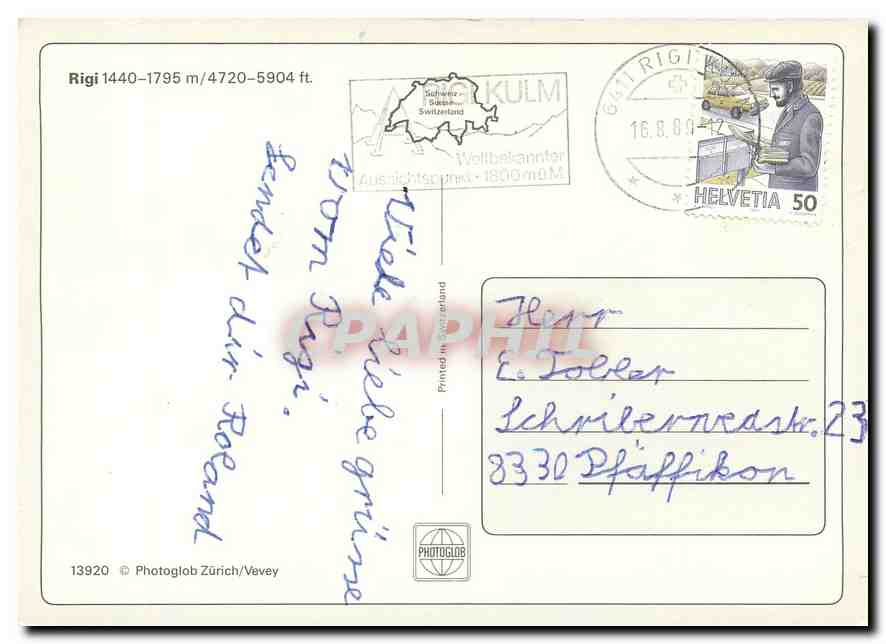 Rigi 1440–1795 m/4720–5904 ft.
RIGI KULM
Schweiz
Suisse
Switzerland
Weltbekannter
Aussichtspunkt · 1800 m ü.M.
6411 RIGI
16.8.89-12
HELVETIA 50
Viele liebe grüsse
vom Rigi.
sendet dir Roland
Printed in Switzerland
CPAPHIL
Herr
E. Tobler
Schribernedstr. 23
8330 Pfäffikon
PHOTOGLOB
13920 © Photoglob Zürich/Vevey